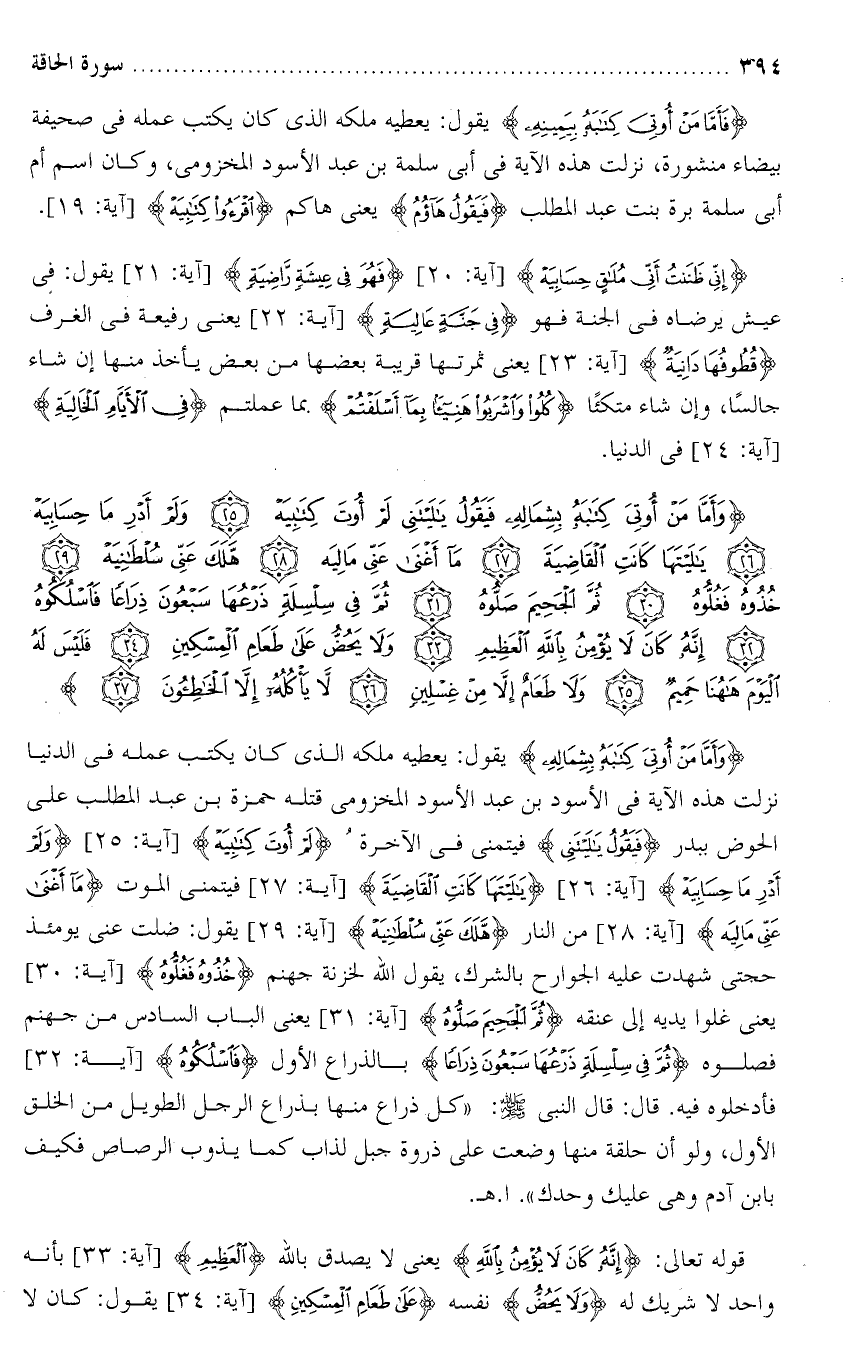 ٣٩٤ ........................................................................ سورة الحاقة
﴿فَأَمَّا مَنْ أُوتِىَ كِتَٰبَهُۥ بِيَمِينِهِۦ﴾ يقول: يعطيه ملكه الذى كان يكتب عمله فى صحيفة
بيضاء منشورة، نزلت هذه الآية فى أبى سلمة بن عبد الأسود المخزومى، وكان اسم أم
أبى سلمة برة بنت عبد المطلب ﴿فَيَقُولُ هَآؤُمُ﴾ يعنى هاكم ﴿ٱقْرَءُوا۟ كِتَٰبِيَهْ﴾ [آية: ١٩].
﴿إِنِّى ظَنَنتُ أَنِّى مُلَٰقٍ حِسَابِيَهْ﴾ [آية: ٢٠] ﴿فَهُوَ فِى عِيشَةٍ رَّاضِيَةٍ﴾ [آية: ٢١] يقول: فى
عيش يرضاه فى الجنة فهو ﴿فِى جَنَّةٍ عَالِيَةٍ﴾ [آية: ٢٢] يعنى رفيعة فى الغرف
﴿قُطُوفُهَا دَانِيَةٌ﴾ [آية: ٢٣] يعنى ثمرتها قريبة بعضها من بعض يأخذ منها إن شاء
جالسًا، وإن شاء متكئًا ﴿كُلُوا۟ وَٱشْرَبُوا۟ هَنِيٓـًٔا بِمَآ أَسْلَفْتُمْ﴾ بما عملتم ﴿فِى ٱلْأَيَّامِ ٱلْخَالِيَةِ﴾
[آية: ٢٤] فى الدنيا.
﴿وَأَمَّا مَنْ أُوتِىَ كِتَٰبَهُۥ بِشِمَالِهِۦ فَيَقُولُ يَٰلَيْتَنِى لَمْ أُوتَ كِتَٰبِيَهْ ٢٥ وَلَمْ أَدْرِ مَا حِسَابِيَهْ
٢٦ يَٰلَيْتَهَا كَانَتِ ٱلْقَاضِيَةَ ٢٧ مَآ أَغْنَىٰ عَنِّى مَالِيَهْ ٢٨ هَلَكَ عَنِّى سُلْطَٰنِيَهْ ٢٩
خُذُوهُ فَغُلُّوهُ ٣٠ ثُمَّ ٱلْجَحِيمَ صَلُّوهُ ٣١ ثُمَّ فِى سِلْسِلَةٍ ذَرْعُهَا سَبْعُونَ ذِرَاعًا فَٱسْلُكُوهُ
٣٢ إِنَّهُۥ كَانَ لَا يُؤْمِنُ بِٱللَّهِ ٱلْعَظِيمِ ٣٣ وَلَا يَحُضُّ عَلَىٰ طَعَامِ ٱلْمِسْكِينِ ٣٤ فَلَيْسَ لَهُ
ٱلْيَوْمَ هَٰهُنَا حَمِيمٌ ٣٥ وَلَا طَعَامٌ إِلَّا مِنْ غِسْلِينٍ ٣٦ لَّا يَأْكُلُهُۥٓ إِلَّا ٱلْخَٰطِـُٔونَ ٣٧ ﴾
﴿وَأَمَّا مَنْ أُوتِىَ كِتَٰبَهُۥ بِشِمَالِهِۦ﴾ يقول: يعطيه ملكه الذى كان يكتب عمله فى الدنيا
نزلت هذه الآية فى الأسود بن عبد الأسود المخزومى قتله حمزة بن عبد المطلب على
الحوض ببدر ﴿فَيَقُولُ يَٰلَيْتَنِى﴾ فيتمنى فى الآخرة ﴿لَمْ أُوتَ كِتَٰبِيَهْ﴾ [آية: ٢٥] ﴿وَلَمْ
أَدْرِ مَا حِسَابِيَهْ﴾ [آية: ٢٦] ﴿يَٰلَيْتَهَا كَانَتِ ٱلْقَاضِيَةَ﴾ [آية: ٢٧] فيتمنى الموت ﴿مَآ أَغْنَىٰ
عَنِّى مَالِيَهْ﴾ [آية: ٢٨] من النار ﴿هَلَكَ عَنِّى سُلْطَٰنِيَهْ﴾ [آية: ٢٩] يقول: ضلت عنى يومئذ
حجتى شهدت عليه الجوارح بالشرك، يقول الله لخزنة جهنم ﴿خُذُوهُ فَغُلُّوهُ﴾ [آية: ٣٠]
يعنى غلوا يديه إلى عنقه ﴿ثُمَّ ٱلْجَحِيمَ صَلُّوهُ﴾ [آية: ٣١] يعنى الباب السادس من جهنم
فصلوه ﴿ثُمَّ فِى سِلْسِلَةٍ ذَرْعُهَا سَبْعُونَ ذِرَاعًا﴾ بالذراع الأول ﴿فَٱسْلُكُوهُ﴾ [آية: ٣٢]
فأدخلوه فيه. قال: قال النبى ﷺ: «كل ذراع منها بذراع الرجل الطويل من الخلق
الأول، ولو أن حلقة منها وضعت على ذروة جبل لذاب كما يذوب الرصاص فكيف
بابن آدم وهى عليك وحدك». ا.هـ.
قوله تعالى: ﴿إِنَّهُۥ كَانَ لَا يُؤْمِنُ بِٱللَّهِ﴾ يعنى لا يصدق بالله ﴿ٱلْعَظِيمِ﴾ [آية: ٣٣] بأنه
واحد لا شريك له ﴿وَلَا يَحُضُّ﴾ نفسه ﴿عَلَىٰ طَعَامِ ٱلْمِسْكِينِ﴾ [آية: ٣٤] يقول: كان لا